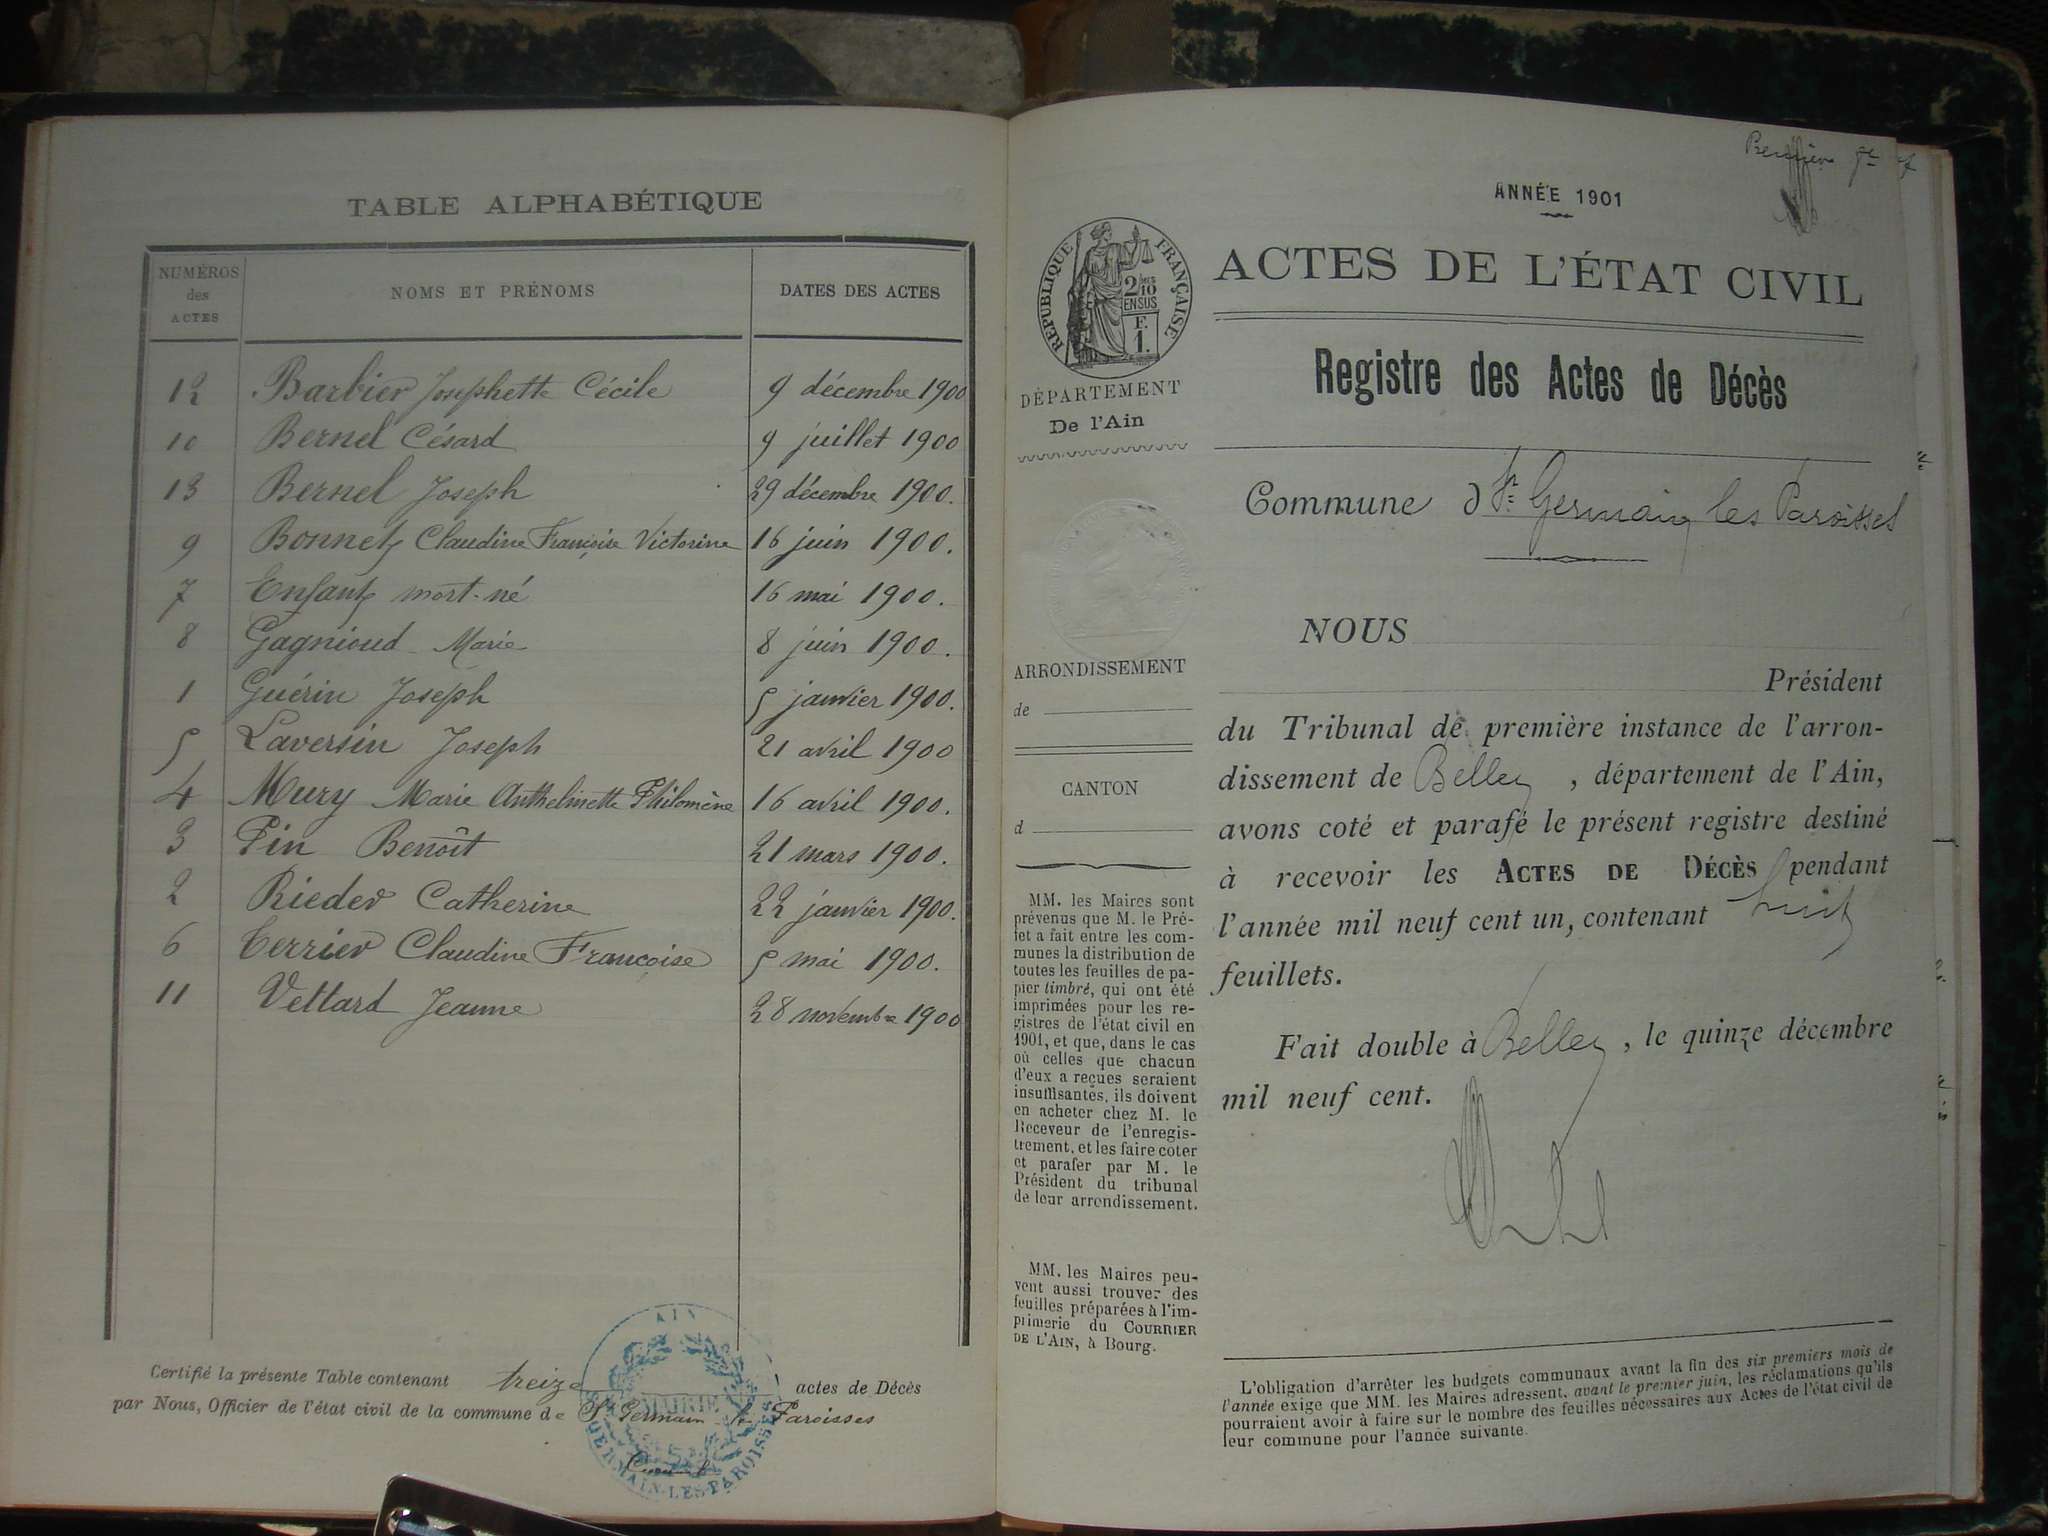 TABLE ALPHABÉTIQUE
NUMÉROS des ACTES
NOMS ET PRÉNOMS
DATES DES ACTES
12 Barbier Josephette Cécile 9 décembre 1900
10 Bernel Césard 9 juillet 1900
13 Bernel Joseph 29 décembre 1900.
9 Bonnet Claudine Françoise Victorine 16 juin 1900.
7 Enfant mort-né 16 mai 1900.
8 Gagnioud Marie 8 juin 1900.
1 Guérin Joseph 5 janvier 1900.
5 Laversin Joseph 21 avril 1900
4 Mury Marie Anthelmette Philomène 16 avril 1900.
3 Pin Benoît 21 mars 1900.
2 Rieder Catherine 22 janvier 1900.
6 Terrier Claudine Françoise 5 mai 1900.
11 Vettard Jeanne 28 novembre 1900
Certifié la présente Table contenant treize actes de Décès
par Nous, Officier de l'état civil de la commune de St Germain les Paroisses
AIN
MAIRIE
ST GERMAIN-LES-PAROISSES
ANNÉE 1901
RÉPUBLIQUE FRANÇAISE
2 DMES
10
EN SUS
F.
1.
ACTES DE L'ÉTAT CIVIL
Registre des Actes de Décès
DÉPARTEMENT
De l'Ain
Commune d St Germain les Paroisses
NOUS
ARRONDISSEMENT
de
CANTON
d
Président
du Tribunal de première instance de l'arron-
dissement de Belley, département de l'Ain,
avons coté et parafé le présent registre destiné
à recevoir les ACTES DE DÉCÈS pendant
l'année mil neuf cent un, contenant huit
feuillets.
Fait double à Belley, le quinze décembre
mil neuf cent.
MM. les Maires sont
prévenus que M. le Pré-
fet a fait entre les com-
munes la distribution de
toutes les feuilles de pa-
pier timbré, qui ont été
imprimées pour les re-
gistres de l'état civil en
1901, et que, dans le cas
où celles que chacun
d'eux a reçues seraient
insuffisantes, ils doivent
en acheter chez M. le
Receveur de l'enregis-
trement, et les faire coter
et parafer par M. le
Président du tribunal
de leur arrondissement.
MM. les Maires peu-
vent aussi trouver des
feuilles préparées à l'im-
primerie du COURRIER
DE L'AIN, à Bourg.
L'obligation d'arrêter les budgets communaux avant la fin des six premiers mois de
l'année exige que MM. les Maires adressent, avant le premier juin, les réclamations qu'ils
pourraient avoir à faire sur le nombre des feuilles nécessaires aux Actes de l'état civil de
leur commune pour l'année suivante.